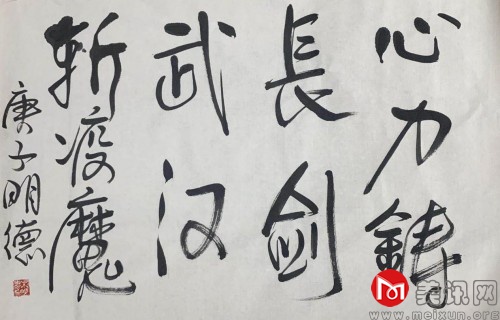 心力鑄
長劍
武汉
斩疫魔
庚子明德
美讯网
www.meixun.org